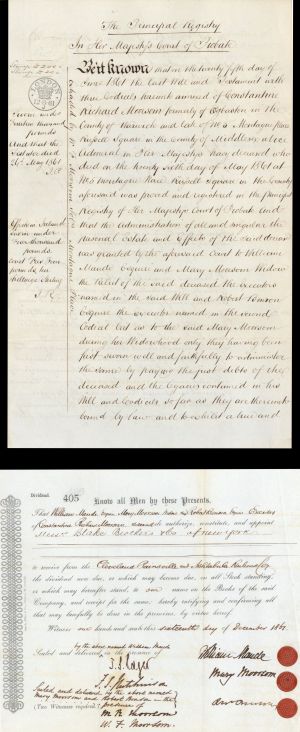 The Principal Registry
In Her Majesty's Court of Probate
LONDON
12·9·61
Be it known that on the twenty fifth day of
June 1861 the last Will and Testament with
three Codicils hereunto annexed of Constantine
Richard Moorsom formerly of Edgbaston in the
County of Warwick and late of No 5 Montague Place
Russell Square in the County of Middlesex Vice
Admiral in Her Majesty's Navy deceased who
died on the twenty sixth day of May 1861 at
No 5 Montague Place Russell Square in the County
aforesaid was proved and registered in the Principal
Registry of Her Majesty's Court of Probate And
that the Administration of all and singular the
Personal Estate and Effects of the said deceased
was granted by the aforesaid Court to William
Maude Esquire and Mary Moorsom Widow
the Relict of the said deceased the executors
named in the said Will and Robert
Esquire the executor named in the second
Codicil but as to the said Mary Moorsom
during her Widowhood only they having been
first sworn well and faithfully to administer
the same by paying the just debts of the
deceased and the legacies contained in his
Will and Codicils so far as they are thereunto
bound by law and to exhibit a true and
And that the
26th May 1861
Dividend.
405
Know all Men by these Presents,
That William Maude Esqre Mary Moorsom Widow and Robert Esqre Executors
of Constantine Richard Moorsom deceased do authorize, constitute, and appoint
Messrs Blake Brothers & Co of New York
to receive from the Cleveland Painesville and Ashtabula Railway Co
the dividend now due, or which may become due, on all Stock standing,
or which may hereafter stand, to our name on the Books of the said
Company, and receipt for the same; hereby ratifying and confirming all
that may lawfully be done in the premises, by virtue hereof.
Witness our hands and seals this sixteenth day of December 1861
by the above named William Maude
Sealed and delivered in the presence of
William Maude
Mary Moorsom
Sealed and delivered by the above named
Mary Moorsom and Robert in the
presence of
(Two Witnesses required.)
M. R. Moorsom
W. F. Moorsom